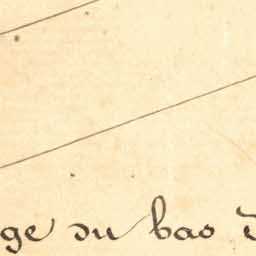 ge du bas d